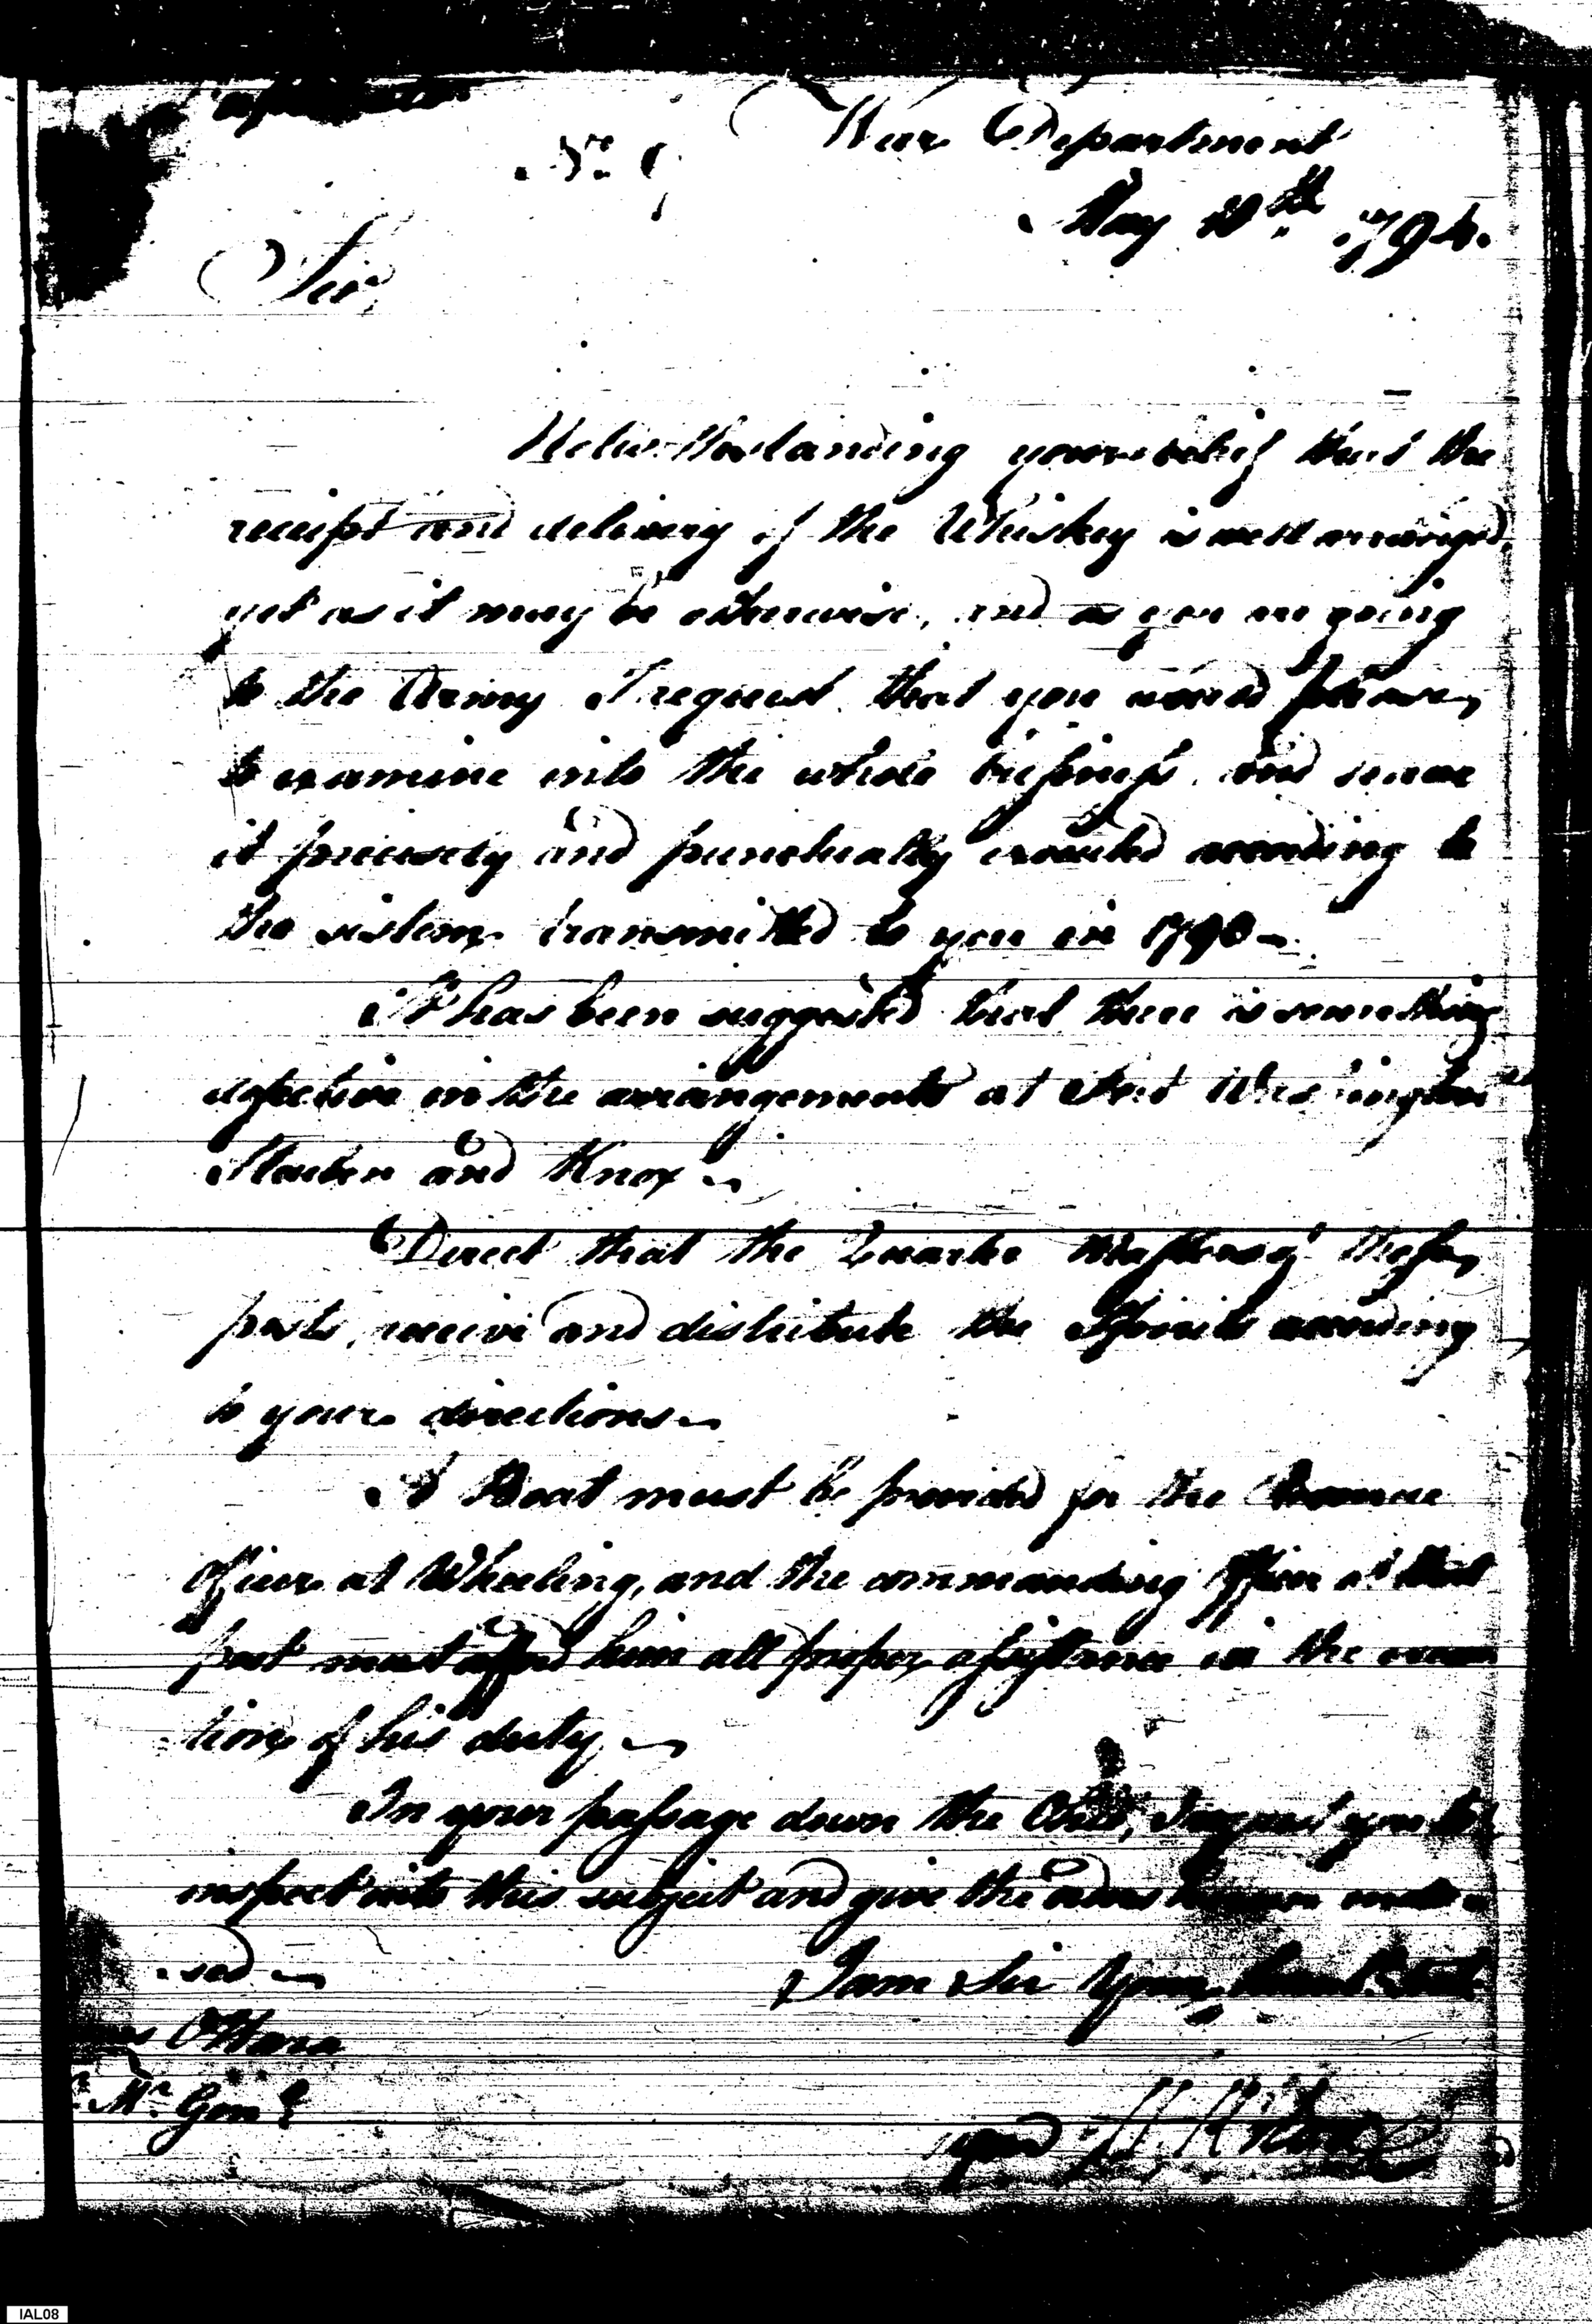 War Department
May 20th 1794.
Sir,
Notwithstanding your belief that the
receipt and delivery of the Whiskey is well arranged,
yet as it may be otherwise, and as you are going
to the Army I request that you would please
to examine into the whole business and
it precisely and punctually executed according to
the sistem transmitted to you in 1793
It has been suggested that there is something
defective in the arrangements at Fort Washington
Steuben and Knox
Direct that the Quarter Masters of these
posts, receive and distribute the Spirits according
to your directions
A Boat must be provided for the Revenue
Officer at Wheeling, and the commanding Officer at that
post must afford him all proper assistance in the execu
tion of his duty
In your passage down the Ohio, I request you to
inspect into this subject and give the orders
I am Sir Your
O'Hara
Mr. Genl
signed H. Knox
IAL08